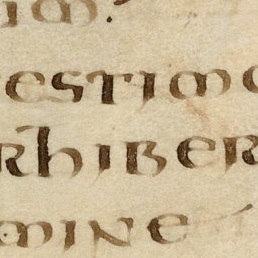 estimo
rhiber
mine